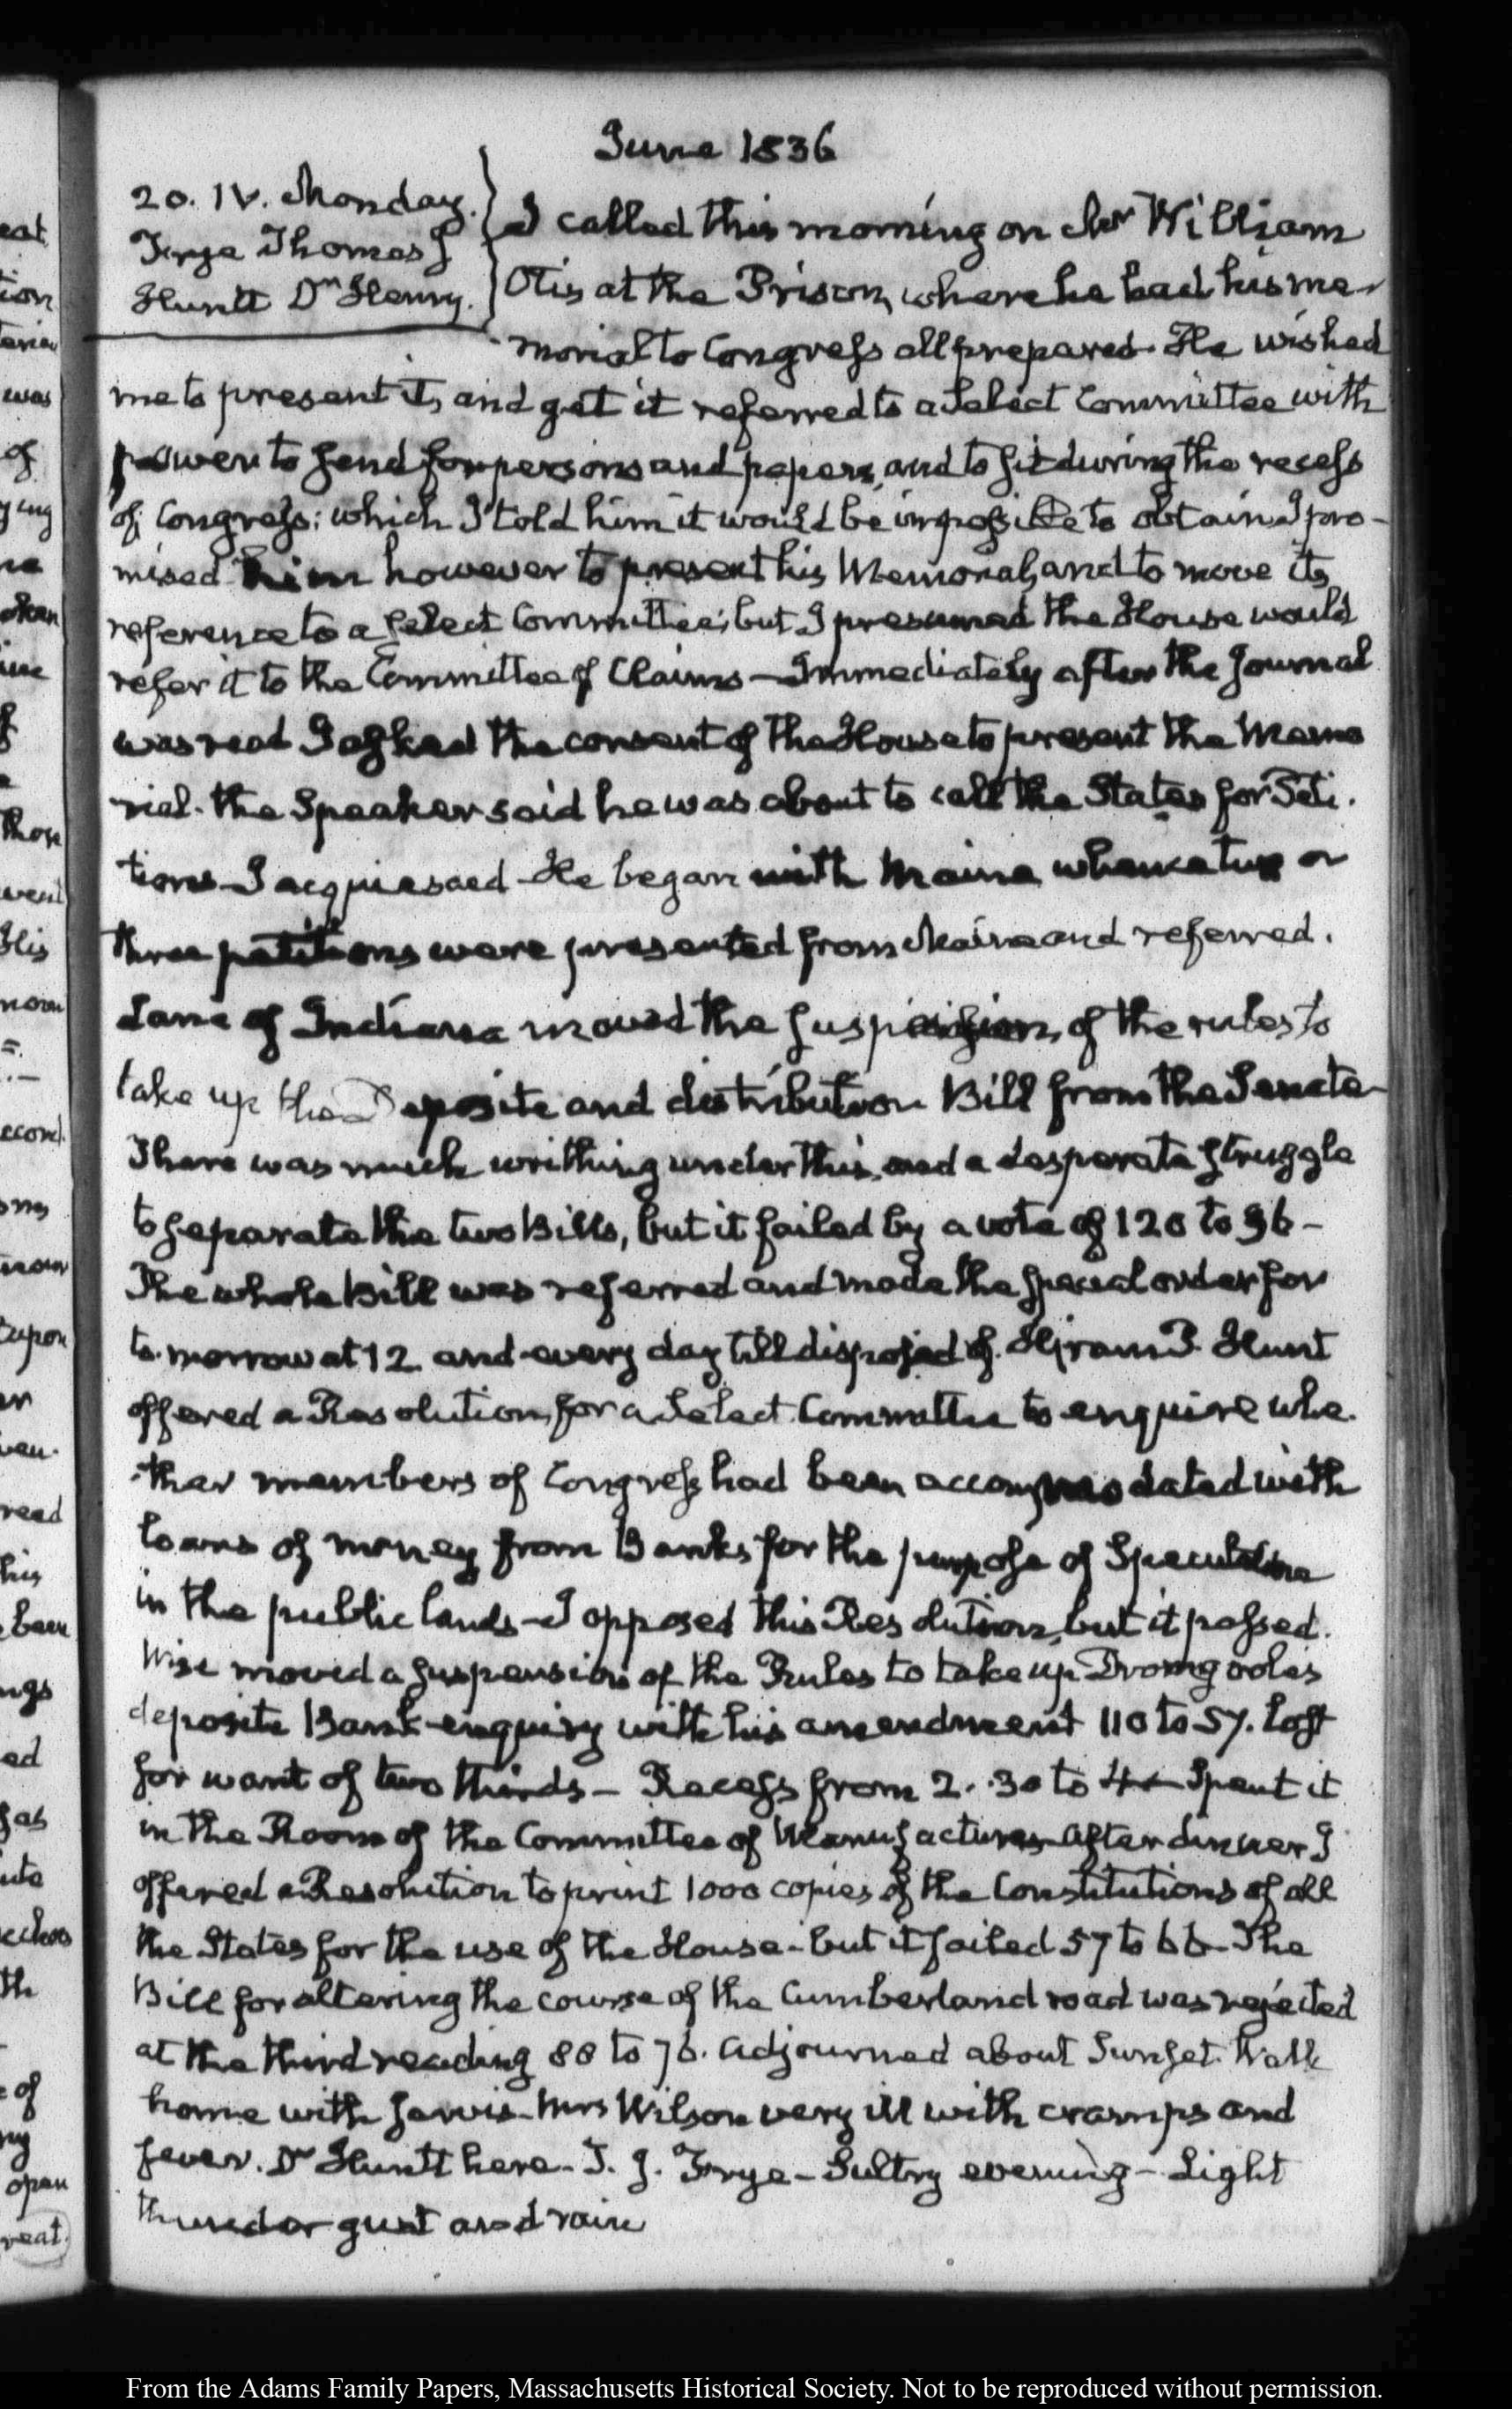 June 1836
20. IV. Monday.
Frye Thomas J
Huntt Dr. Henry.
I called this morning on Mr William
Otis at the Prison, where he had his me-
morial to Congress all prepared. He wished
me to present it, and get it referred to a Select Committee with
power to send for persons and papers, and to sit during the recess
of Congress: which I told him it would be impossible to obtain. I pro-
mised him however to present his Memorial, and to move its
reference to a Select Committee; but I presumed the House would
refer it to the Committee of Claims — Immediately after the Journal
was read I asked the consent of the House to present the Memo
rial. the Speaker said he was about to call the States for Peti-
tions — I acquiesced — He began with Maine, two or
three petitions were presented from Maine and referred.
Lane of Indiana moved the suspension of the rules to
take up the Deposite and distribution Bill from the Senate
There was much writhing under this, and a desperate struggle
to separate the two Bills, but it failed by a vote of 120 to 96 —
The whole Bill was referred and made the special order for
to-morrow at 12 and every day till disposed of. Hiram P. Hunt
offered a Resolution, for a Select Committee to enquire whe-
-ther members of Congress had been accommodated with
loans of money from Banks for the purpose of Speculation
in the public lands — I opposed this Resolution, but it passed.
Wise moved a suspension of the Rules to take up Dromgooles
deposite Bank-enquiry with his amendment 110 to 57. lost
for want of two thirds — Recess from 2..30 to 4 — Spent it
in the Room of the Committee of Manufactures — After dinner I
offered a Resolution to print 1000 copies of the Constitutions of all
the States for the use of the House — but it failed 57 to 66 — The
Bill for altering the course of the Cumberland road was rejected
at the third reading 88 to 76. Adjourned about Sunset. Walk
home with Jarvis — Mrs Wilson very ill with cramps and
fever. Dr Huntt here — T. J. Frye — Sultry evening — Light
thunder gust and rain
eat
tion
was
of
ying
ne
those
went
His
=.
read
his
been
ngs
ed
th
of
ny
open
reat.
From the Adams Family Papers, Massachusetts Historical Society. Not to be reproduced without permission.